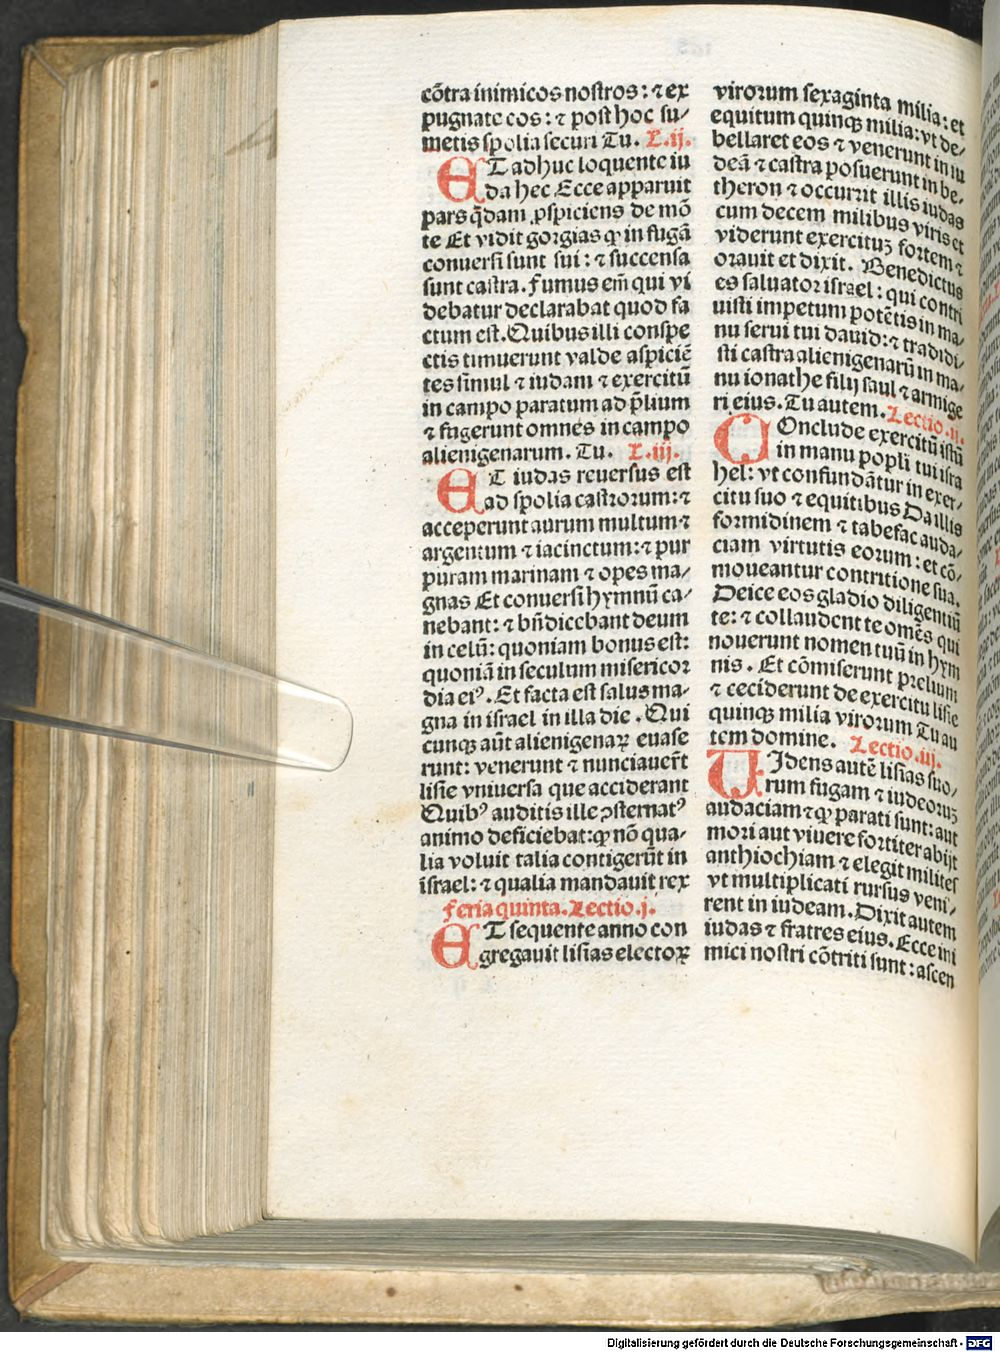 cõtra inimicos nostros: ⁊ ex
pugnate eos: ⁊ post hoc su⸗
metis spolia securi Tu. L.ij.
ET adhuc loquente iu
da hec Ecce apparuit
pars q̃dam ꝓspiciens de mõ
te Et vidit gorgias ꝙ in fugã
conuersi sunt sui: ⁊ succensa
sunt castra. Fumus em̃ qui vi
debatur declarabat quod fa
ctum est. Quibus illi conspe
ctis timuerunt valde aspiciẽ
tes simul ⁊ iudam ⁊ exercitũ
in campo paratum ad p̃lium
⁊ fugerunt omnes in campo
alienigenarum. Tu. L.iij.
ET iudas reuersus est
ad spolia castrorum: ⁊
acceperunt aurum multum ⁊
argentum ⁊ iacinctum: ⁊ pur
puram marinam ⁊ opes ma⸗
gnas Et conuersi hymnũ ca⸗
nebant: ⁊ bñdicebant deum
in celũ: quoniam bonus est:
quoniã in seculum misericor
dia eiꝰ. Et facta est salus ma⸗
gna in israel in illa die. Qui
cunqꝫ aũt alienigenaꝝ euase
runt: venerunt ⁊ nunciauer̃t
lisie vniuersa que acciderant
Quibꝰ auditis ille ꝯsternatꝰ
animo deficiebat: ꝙ nõ qua⸗
lia voluit talia contigerũt in
israel: ⁊ qualia mandauit rex
Feria quinta. Lectio.j.
ET sequente anno con
gregauit lisias electoꝝ
virorum sexaginta milia: et
equitum quinqꝫ milia: vt de⸗
bellaret eos ⁊ venerunt in iu
deã ⁊ castra posuerunt in be⸗
theron ⁊ occurrit illis iudas
cum decem milibus viris et
viderunt exercituꝫ fortem ⁊
orauit et dixit. Benedictus
es saluator israel: qui contri
uisti impetum potẽtis in ma⸗
nu serui tui dauid: ⁊ tradidi⸗
sti castra alienigenarũ in ma⸗
nu ionathe filij saul ⁊ armige
ri eius. Tu autem. Lectio.ij.
COnclude exercitũ istũ
in manu popli tui isra
hel: vt confundãtur in exer⸗
citu suo ⁊ equitibus Da illis
formidinem ⁊ tabefac auda⸗
ciam virtutis eorum: et cõ⸗
moueantur contritione sua.
Deice eos gladio diligentiũ
te: ⁊ collaudent te omẽs qui
nouerunt nomen tuũ in hym
nis. Et cõmiserunt prelium
⁊ ceciderunt de exercitu lisie
quinqꝫ milia virorum Tu au
tem domine. Lectio.iij.
UIdens autẽ lisias suo⸗
rum fugam ⁊ iudeoruꝫ
audaciam ⁊ ꝙ parati sunt: aut
mori aut viuere fortiter abijt
anthiochiam ⁊ elegit milites
vt multiplicati rursus veni⸗
rent in iudeam. Dixit autem
iudas ⁊ fratres eius. Ecce ini
mici nostri cõtriti sunt: ascen
Digitalisierung gefördert durch die Deutsche Forschungsgemeinschaft - DFG